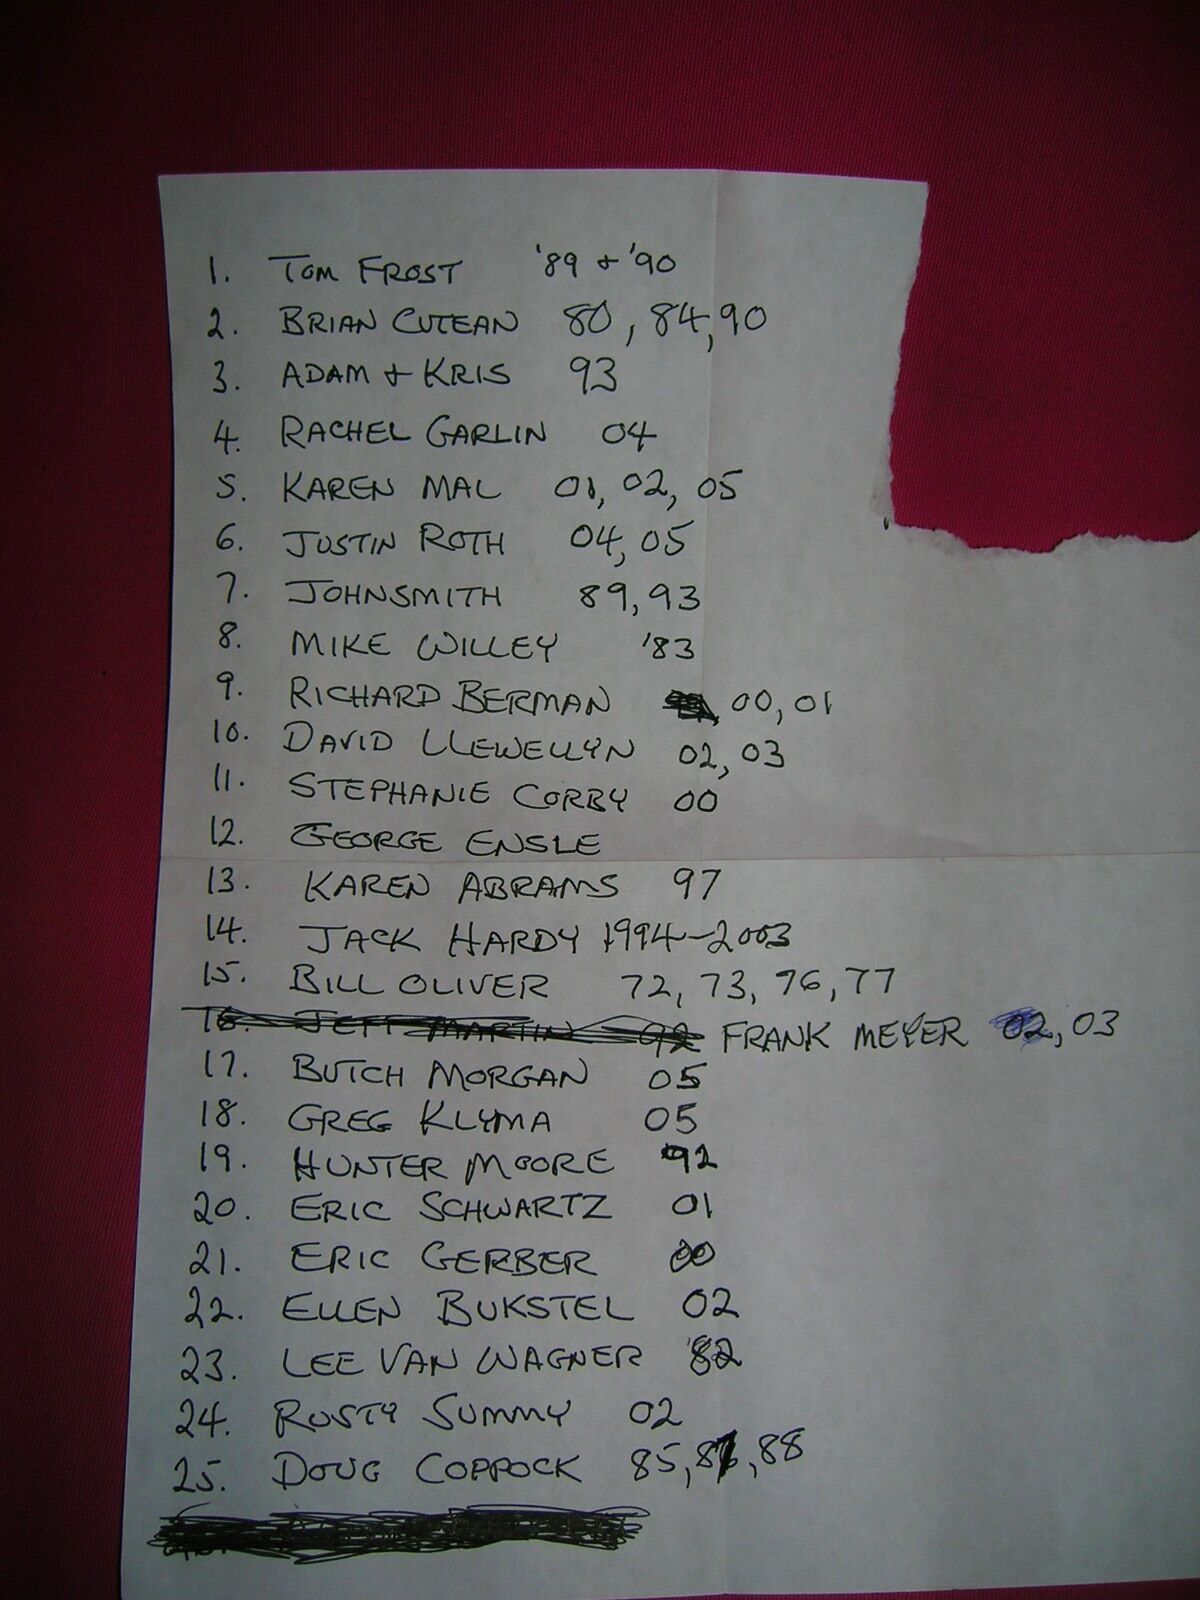 1. TOM FROST '89 + '90
2. BRIAN CUTEAN 80, 84, 90
3. ADAM + KRIS 93
4. RACHEL GARLIN 04
5. KAREN MAL 01, 02, 05
6. JUSTIN ROTH 04, 05
7. JOHNSMITH 89, 93
8. MIKE WILLEY '83
9. RICHARD BERMAN 00, 01
10. DAVID LLEWELLYN 02, 03
11. STEPHANIE CORBY 00
12. GEORGE ENSLE
13. KAREN ABRAMS 97
14. JACK HARDY 1994-2003
15. BILL OLIVER 72, 73, 76, 77
16. JEFF MARTIN 92 FRANK MEYER 02, 03
17. BUTCH MORGAN 05
18. GREG KLYMA 05
19. HUNTER MOORE 92
20. ERIC SCHWARTZ 01
21. ERIC GERBER 00
22. ELLEN BUKSTEL 02
23. LEE VAN WAGNER '82
24. RUSTY SUMMY 02
25. DOUG COPPOCK 85, 87, 88